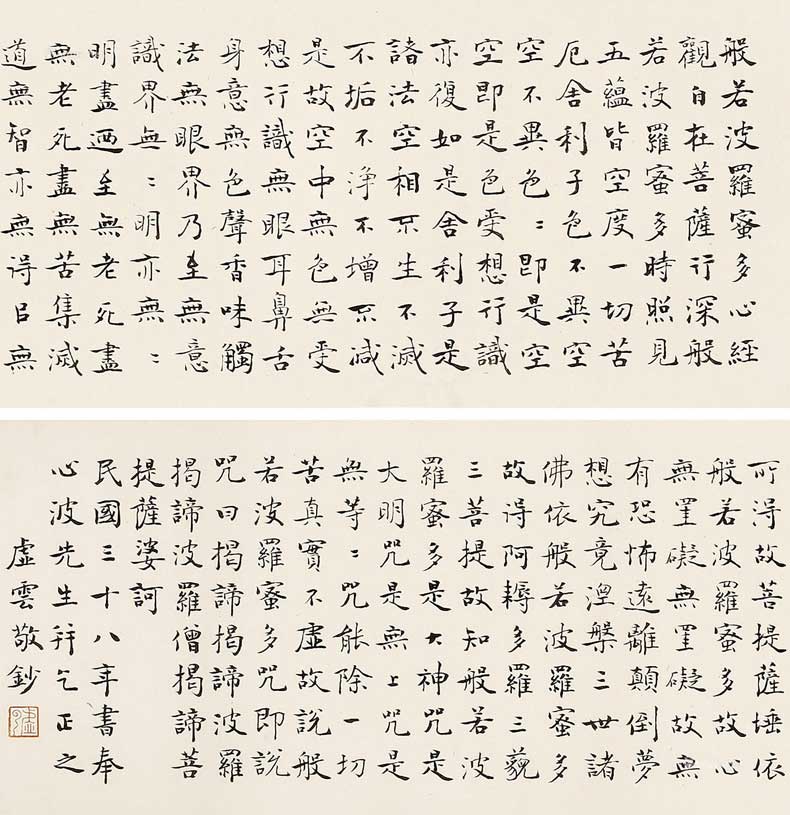 般若波羅蜜多心經
觀自在菩薩行深般
若波羅蜜多時照見
五蘊皆空度一切苦
厄舍利子色不異空
空不異色〻即是空
空即是色受想行識
亦復如是舍利子是
諸法空相不生不滅
不垢不淨不增不減
是故空中無色無受
想行識無眼耳鼻舌
身意無色聲香味觸
法無眼界乃至無意
識界無〻明亦無〻
明盡迺至無老死盡
無老死盡無苦集滅
道無智亦無得㠯無
所得故菩提薩埵依
般若波羅蜜多故心
無罣礙無罣礙故無
有恐怖遠離顛倒夢
想究竟涅槃三世諸
佛依般若波羅蜜多
故得阿耨多羅三藐
三菩提故知般若波
羅蜜多是大神咒是
大明咒是無上咒是
無等〻咒能除一切
苦真實不虛故說般
若波羅蜜多咒即說
咒曰揭諦揭諦波羅
揭諦波羅僧揭諦菩
提薩娑訶
民國三十八年書奉
心波先生并乞正之
虛雲敬鈔